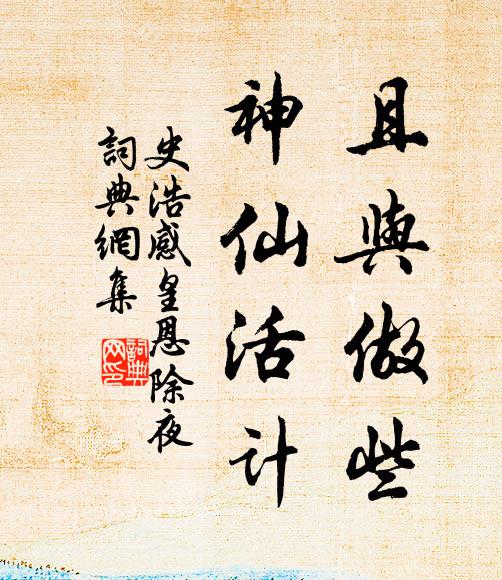 且與做些
神仙活計
史浩感皇恩除夜
詞典網集
詞典
网印